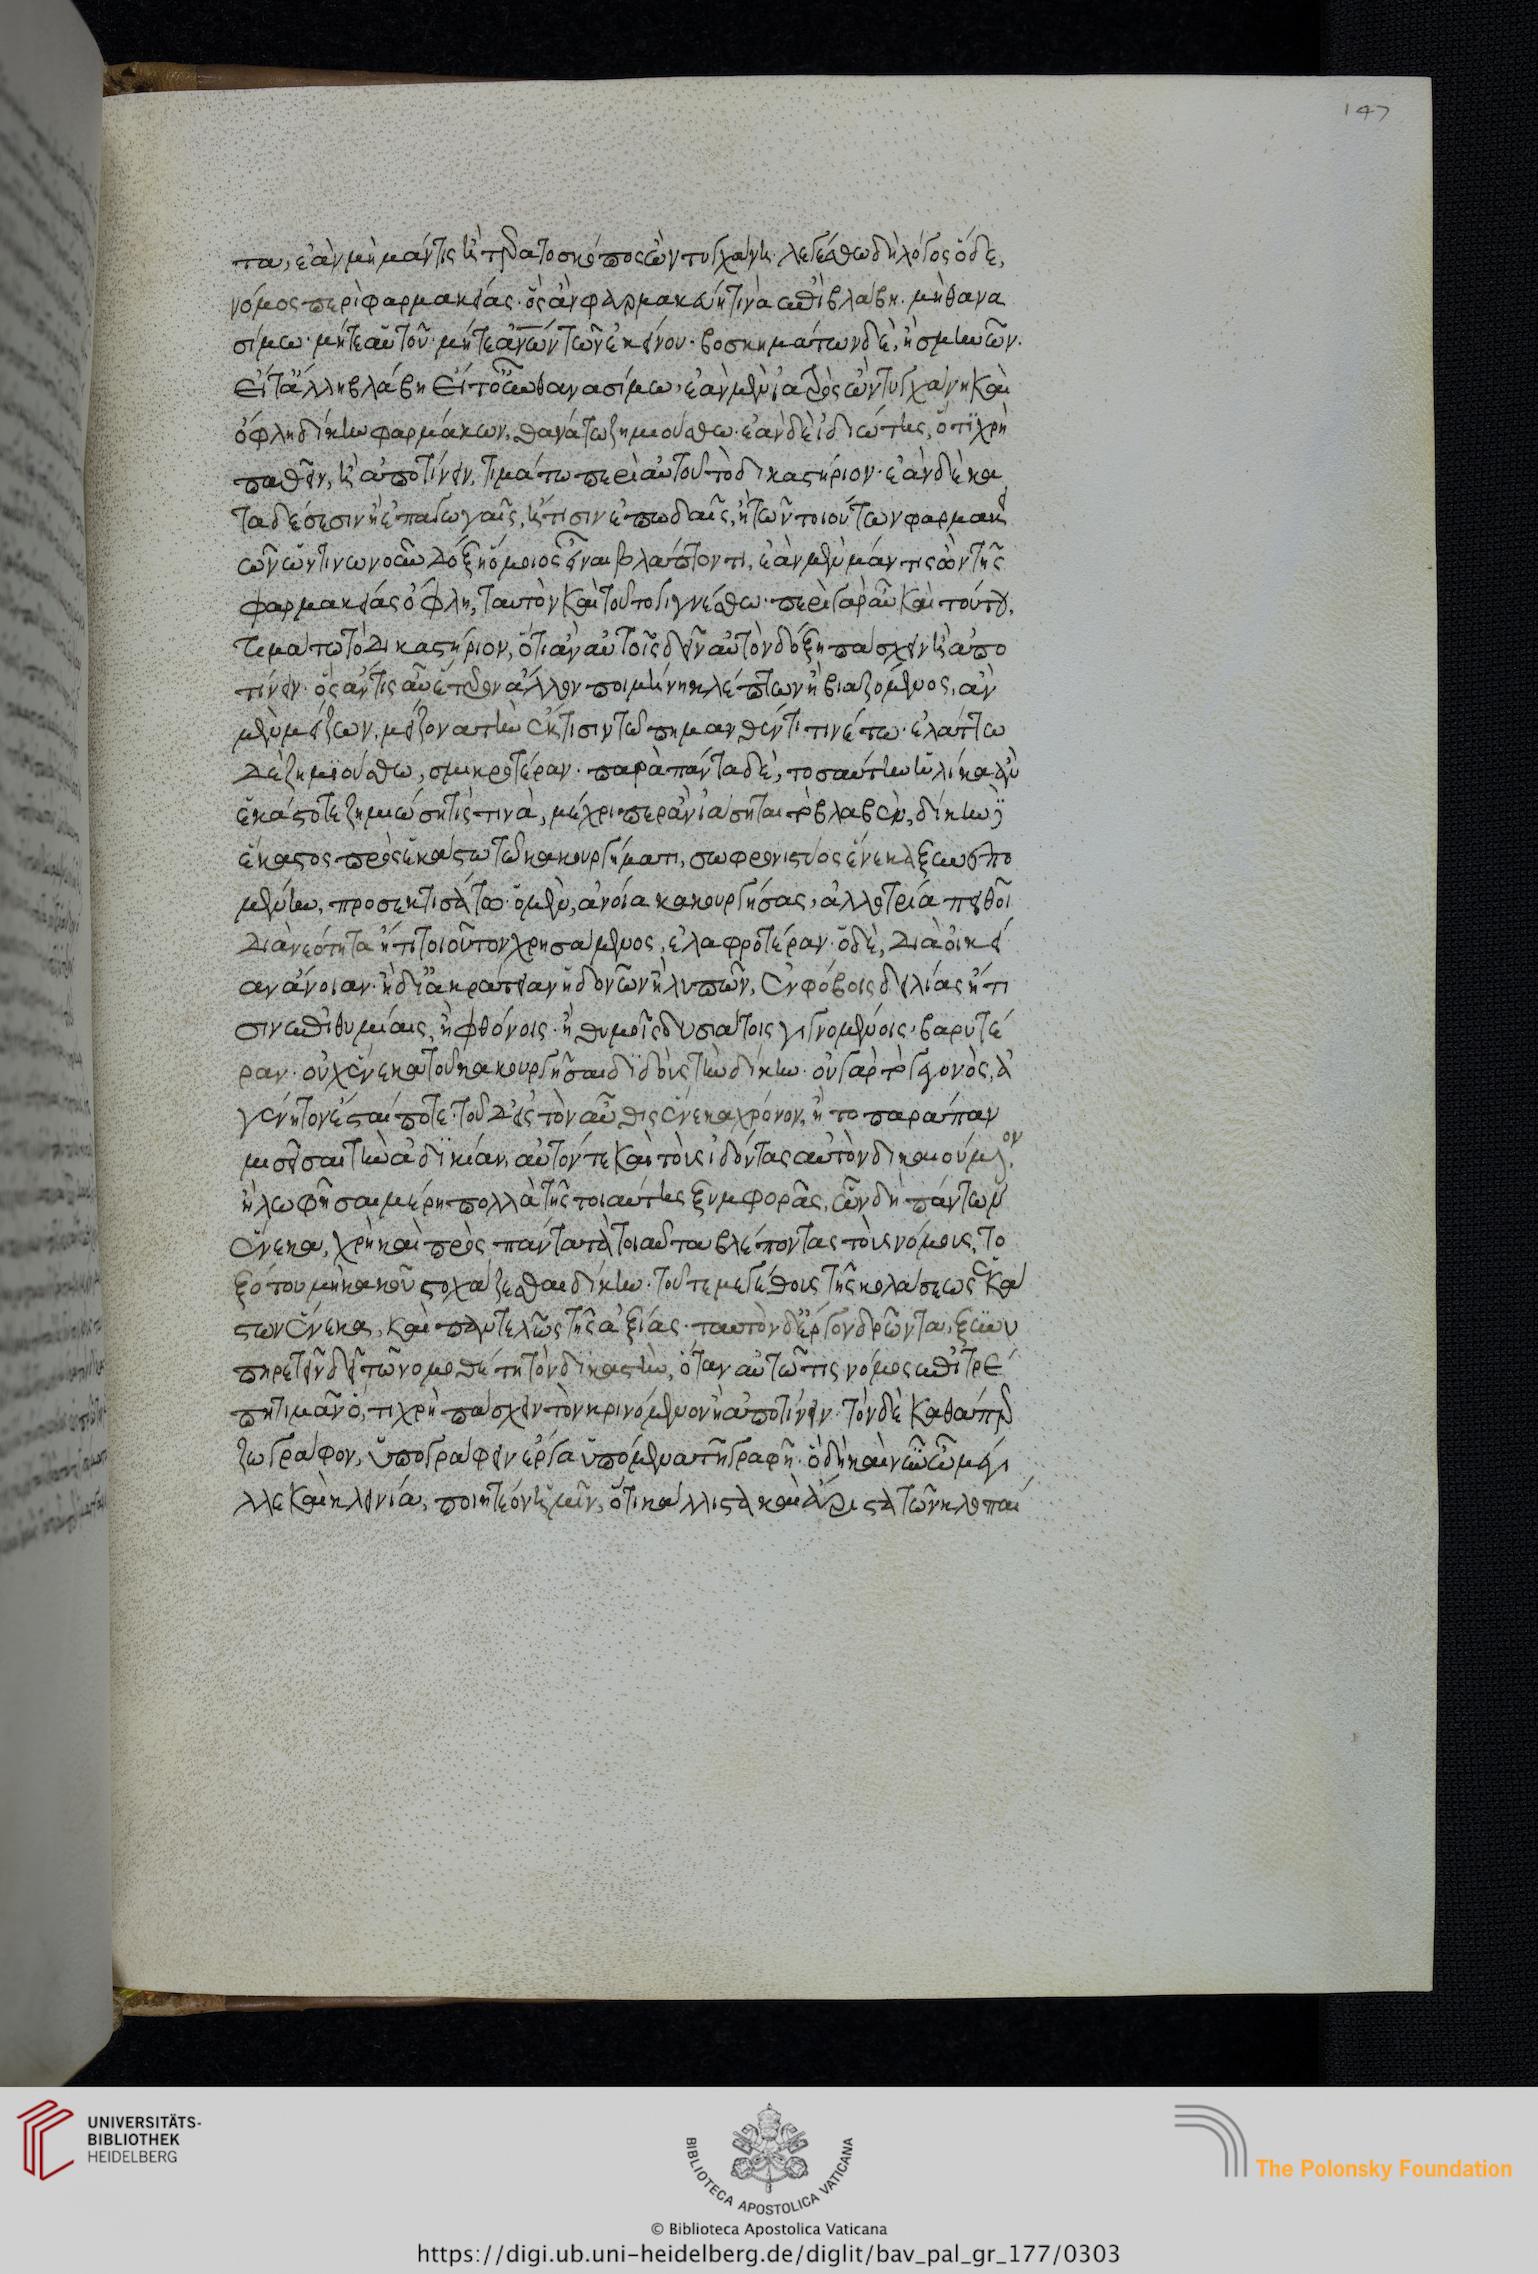 147
τα, ἐὰν μὴ μάντις ἢ τερατοσκόπος ὢν τυγχάνη. λεγέσθω δὴ λόγος ὅδε,
νόμος περὶ φαρμακείας. ὃς ἂν φαρμακεύη τινὰ ἐπὶ βλάβη. μὴ θανα
σίμω. μήτε αὐτοῦ. μήτε ἀνῶν τῶν ἐκείνου. βοσκημάτων δὲ, ἢ σμηνῶν.
εἴτ' ἄλλη βλάβη εἴτ' οὖν θανασίμω, ἐὰν μὲν ἰατρὸς ὢν τυγχάνη καὶ
ὄφλη δίκην φαρμάκων, θανάτω ζημιούσθω. ἐὰν δὲ ἰδιώτης, ὅτι χρὴ
παθεῖν, ἢ ἀποτίνειν, τιμάτω περὶ αὐτοῦ τὸ δικαστήριον. ἐὰν δὲ κα
ταδέσεσιν ἢ ἐπαγωγαῖς, ἤ τισιν ἐπωδαῖς, ἢ τῶν τοιούτων φαρμακει
ῶν ὧντινωνοῦν δόξη ὅμοιος εἶναι βλάπτοντι, ἐὰν μὲν μάντις ὢν τῆς
φαρμακείας ὄφλη, ταυτὸν καὶ τοῦτο γιγνέσθω. περὶ γὰρ αὖ καὶ τούτου,
τιμάτω τὸ δικαστήριον, ὅτι ἂν αὐτοῖς δεῖν αὐτὸν δόξη πάσχειν ἢ ἀπο
τίνειν. ὅς ἄν τις αὖ ἕτερον ἄλλον πημήνη κλέπτων ἢ βιαζόμενος, ἂν
μὲν μείζω, μείζονα τὴν ἔκτισιν τῶ πημανθέντι τινέτω. ἐλάττω
δὲ ζημιούσθω, σμικροτέραν. παρὰ πάντα δὲ, τοσαύτην ἡλίκα ἂν
ἑκάστοτε ζημιώση τίς τινὰ, μέχριπερ ἂν ἰάσηται τὸ βλαβὲν, δίκην δὲ
ἕκαστος πρὸς ἑκάστω τῶ κακουργήματι, σωφρονιστύος ἕνεκα ξυνεπο
μένην, προσεκτισάτω. ὁ μὲν, ἀνοία κακουργήσας, ἀλλοτρία πειθοῖ
διὰ νεότητα ἤ τι τοιοῦτον χρησάμενος, ἐλαφροτέραν. ὁ δὲ, διὰ οἰκεί
αν ἄνοιαν. ἢ δι' ἀκράτειαν ἡδονῶν ἢ λυπῶν, ἐν φόβοις δειλίας ἤ τι
σιν ἐπιθυμίαις, ἢ φθόνοις. ἢ θυμοῖς δυσιάτοις γιγνομένοις, βαρυτέ
ραν. οὐχ ἕνεκα τοῦ κακουργῆσαι διδοὺς τὴν δίκην. οὐ γὰρ τὸ γεγονὸς, ἀ
γένητον ἔσται ποτε. τοῦ δ' εἰς τὸν αὖθις ἕνεκα χρόνον, ἢ το παράπαν
μισῆσαι τὴν ἀδικίαν, αὐτόν τε καὶ τοὺς ἰδόντας αὐτὸν δικαιούμενον
ἢ λωφῆσαι μέρη πολλὰ τῆς τοιαύτης ξυμφορᾶς, ὧν δὴ πάντων
ἕνεκα, χρὴ καὶ πρὸς πάντα τὰ τοιαῦτα βλέποντας τοὺς νόμους, το
ξότου μὴ κακοῦ στοχάζεσθαι δίκην. τοῦ τε μεγέθους τῆς κολάσεως ἑκά
στων ἕνεκα, καὶ παντελῶς τῆς ἀξίας. ταυτὸν δ' ἔργον δρῶντα, ξυνυ
πηρετεῖν δεῖ τῶ νομοθέτη τὸν δικαστὴν, ὅταν αὐτῶ τις νόμος ἐπιτρέ
πη τιμᾶν ὅ, τι χρὴ πάσχειν τὸν κρινόμενον ἢ ἀποτίνειν. τὸν δὲ καθάπερ
ζωγράφον, ὑπογράφειν ἔργα ἑπόμενα τῆ γραφῆ. ὃ δὴ καὶ νῦν ὦ μέγι
λλε καὶ κλεινία, ποιητέον ἡμῖν, ὅτι κάλλιστα καὶ ἄριστα τῶν κλοπαί
UNIVERSITÄTS-
BIBLIOTHEK
HEIDELBERG
BIBLIOTECA APOSTOLICA VATICANA
© Biblioteca Apostolica Vaticana
The Polonsky Foundation
https://digi.ub.uni-heidelberg.de/diglit/bav_pal_gr_177/0303